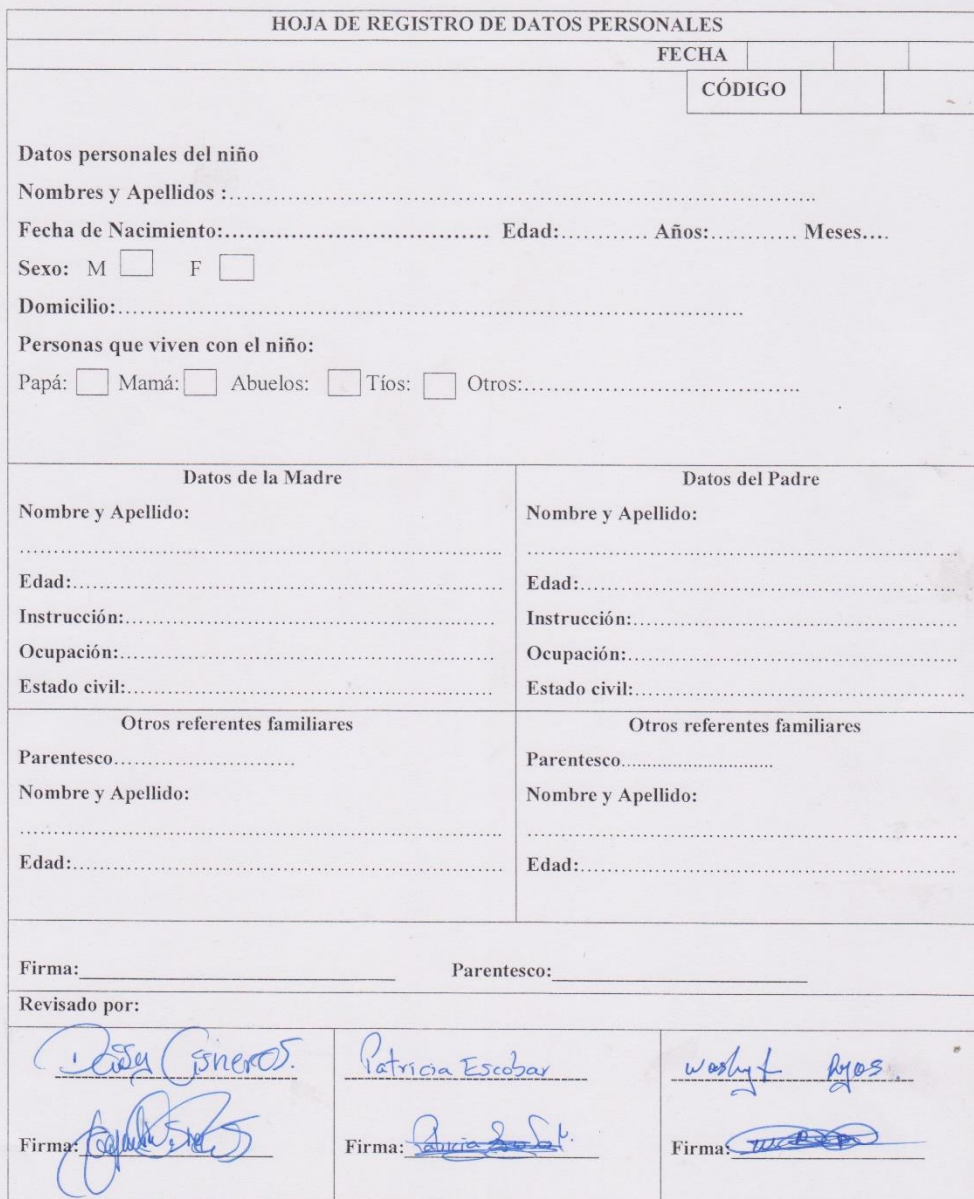 HOJA DE REGISTRO DE DATOS PERSONALES
FECHA
CÓDIGO
Datos personales del niño
Nombres y Apellidos :……………………………………………………………………..
Fecha de Nacimiento:……………………………… Edad:………… Años:………… Meses….
Sexo: M F
Domicilio:…………………………………………………………………………
Personas que viven con el niño:
Papá: Mamá: Abuelos: Tíos: Otros:………………………………..
Datos de la Madre
Nombre y Apellido:
Edad:……………………………………………………
Instrucción:………………………………………………
Ocupación:………………………………………………
Estado civil:………………………………………………
Datos del Padre
Nombre y Apellido:
Edad:……………………………………………………
Instrucción:………………………………………………
Ocupación:………………………………………………
Estado civil:………………………………………………
Otros referentes familiares
Parentesco…………………….
Nombre y Apellido:
Edad:……………………………………………………
Otros referentes familiares
Parentesco.............................
Nombre y Apellido:
Edad:……………………………………………………
Firma: Parentesco:
Revisado por:
Daisy Cisneros.
Firma:
Patricia Escobar
Firma:
Firma: